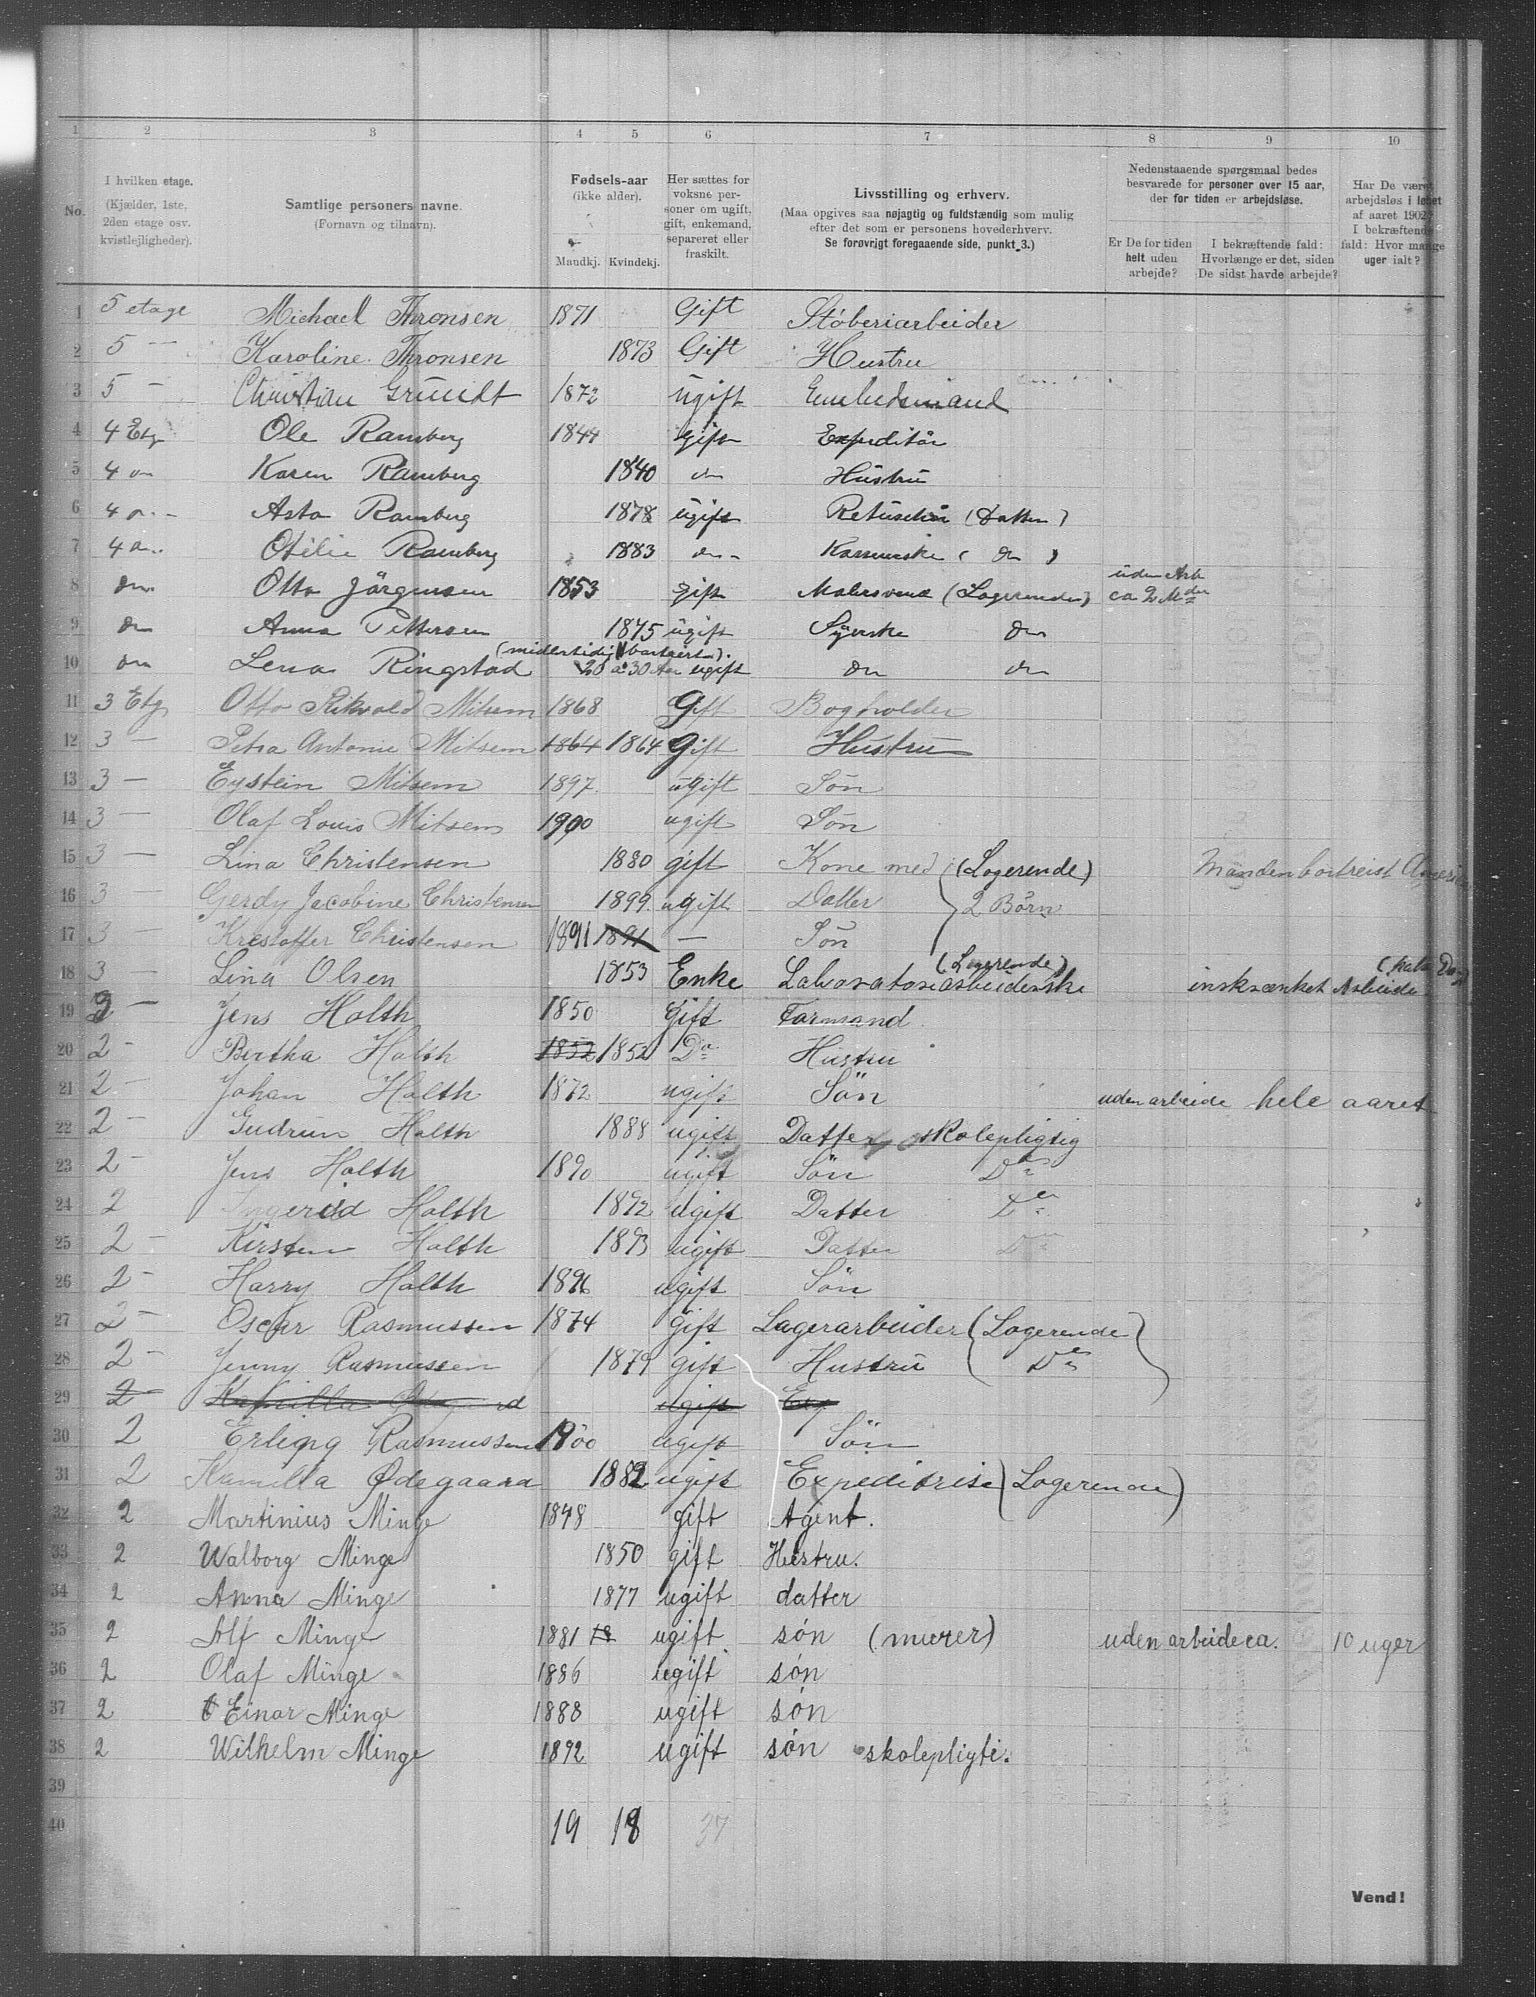 1 2 3 4 5 6 7 8 9 10
No.
I hvilken etage. (Kjælder, 1ste, 2den etage osv. kvistlejligheder).
Samtlige personers navne. (Fornavn og tilnavn).
Fødsels-aar (ikke alder). Mandkj. Kvindekj.
Her sættes for voksne personer om ugift, gift, enkemand, separeret eller fraskilt.
Livsstilling og erhverv. (Maa opgives saa nøjagtig og fuldstændig som mulig efter det som er personens hovederhverv. Se forøvrigt foregaaende side, punkt 3.)
Nedenstaaende spørgsmaal bedes besvarede for personer over 15 aar, der for tiden er arbejdsløse.
Er De for tiden helt uden arbejde?
I bekræftende fald: Hvorlænge er det, siden De sidst havde arbejde?
Har De været arbejdsløs i løbet af aaret 1902? I bekræftende fald: Hvor mange uger ialt?
1 5 etage Michael Thronsen 1871 Gift Støberiarbeider
2 5 — Karoline Thronsen 1873 Gift Hustru
3 5 - Christian Grundt 1872 ugift Embedsmand
4 4 Etg Ole Ramberg 1844 Gift Expeditör
5 4 Karen Ramberg 1840 do Hustru
6 4 Asta Ramberg 1878 ugift (Datter)
7 4 Otilie Ramberg 1883 do (do)
8 do Otto Jörgensen 1853 gift Malersvend (Logerende) uden Arb ca 2 Mder
9 do Anna Pettersen 1875 ugift Syerske do
10 do Lena Ringstad (midlertidig bortreist). 20 a 30 Aar ugift do do
11 3 Etg Otto Mitsem 1868 Gift Bogholder
12 3 — Petra Antonie Mitsem 1864 1864 Gift Hustru
13 3 — Eystein Mitsem 1897 ugift Søn
14 3 — Olaf Louis Mitsem 1900 ugift Søn
15 3 — Lina Christensen 1880 gift Kone med (Logerende) Manden bortreist
16 3 — Gerdy Jacobine Christensen 1899 ugift Datter 2 Børn
17 3 — Kristoffer Christensen 1891 1891 — Søn
18 3 — Lina Olsen 1853 Enke Laboratoriearbeiderske (Logerende) inskrænket Arbeide
19 2 — Jens Holth 1850 Gift Formand
20 2 - Bertha Holth 1852 1852 Do Hustru
21 2 - Johan Holth 1872 ugift Søn uden arbeide hele aaret
22 2 - Gudrun Holth 1888 ugift Datter skolepligtig
23 2 - Jens Holth 1890 ugift Søn Do
24 2 Ingerid Holth 1892 ugift Datter Do
25 2 - Kirsten Holth 1893 ugift Datter Do
26 2 - Harry Holth 1896 ugift Søn
27 2 - Oscar Rasmussen 1874 gift Lagerarbeider (Logerende)
28 2 - Jenny Rasmussen 1879 gift Hustru Do
29 2 Kamilla ugift Exp
30 2 Erling Rasmussen 1900 ugift Søn
31 2 Kamilla Ødegaard 1882 ugift Expeditrise (Logerende)
32 2 Martinius Minge 1848 gift Agent.
33 2 Walborg Minge 1850 gift Hustru.
34 2 Anna Minge 1877 ugift datter
35 2 Alf Minge 1881 18 ugift søn (murer) uden arbeide ca. 10 uger
36 2 Olaf Minge 1886 ugift søn
37 2 Einar Minge 1888 ugift søn
38 2 Wilhelm Minge 1892 ugift søn skolepligti.
39
40 19 18 37
Vend!